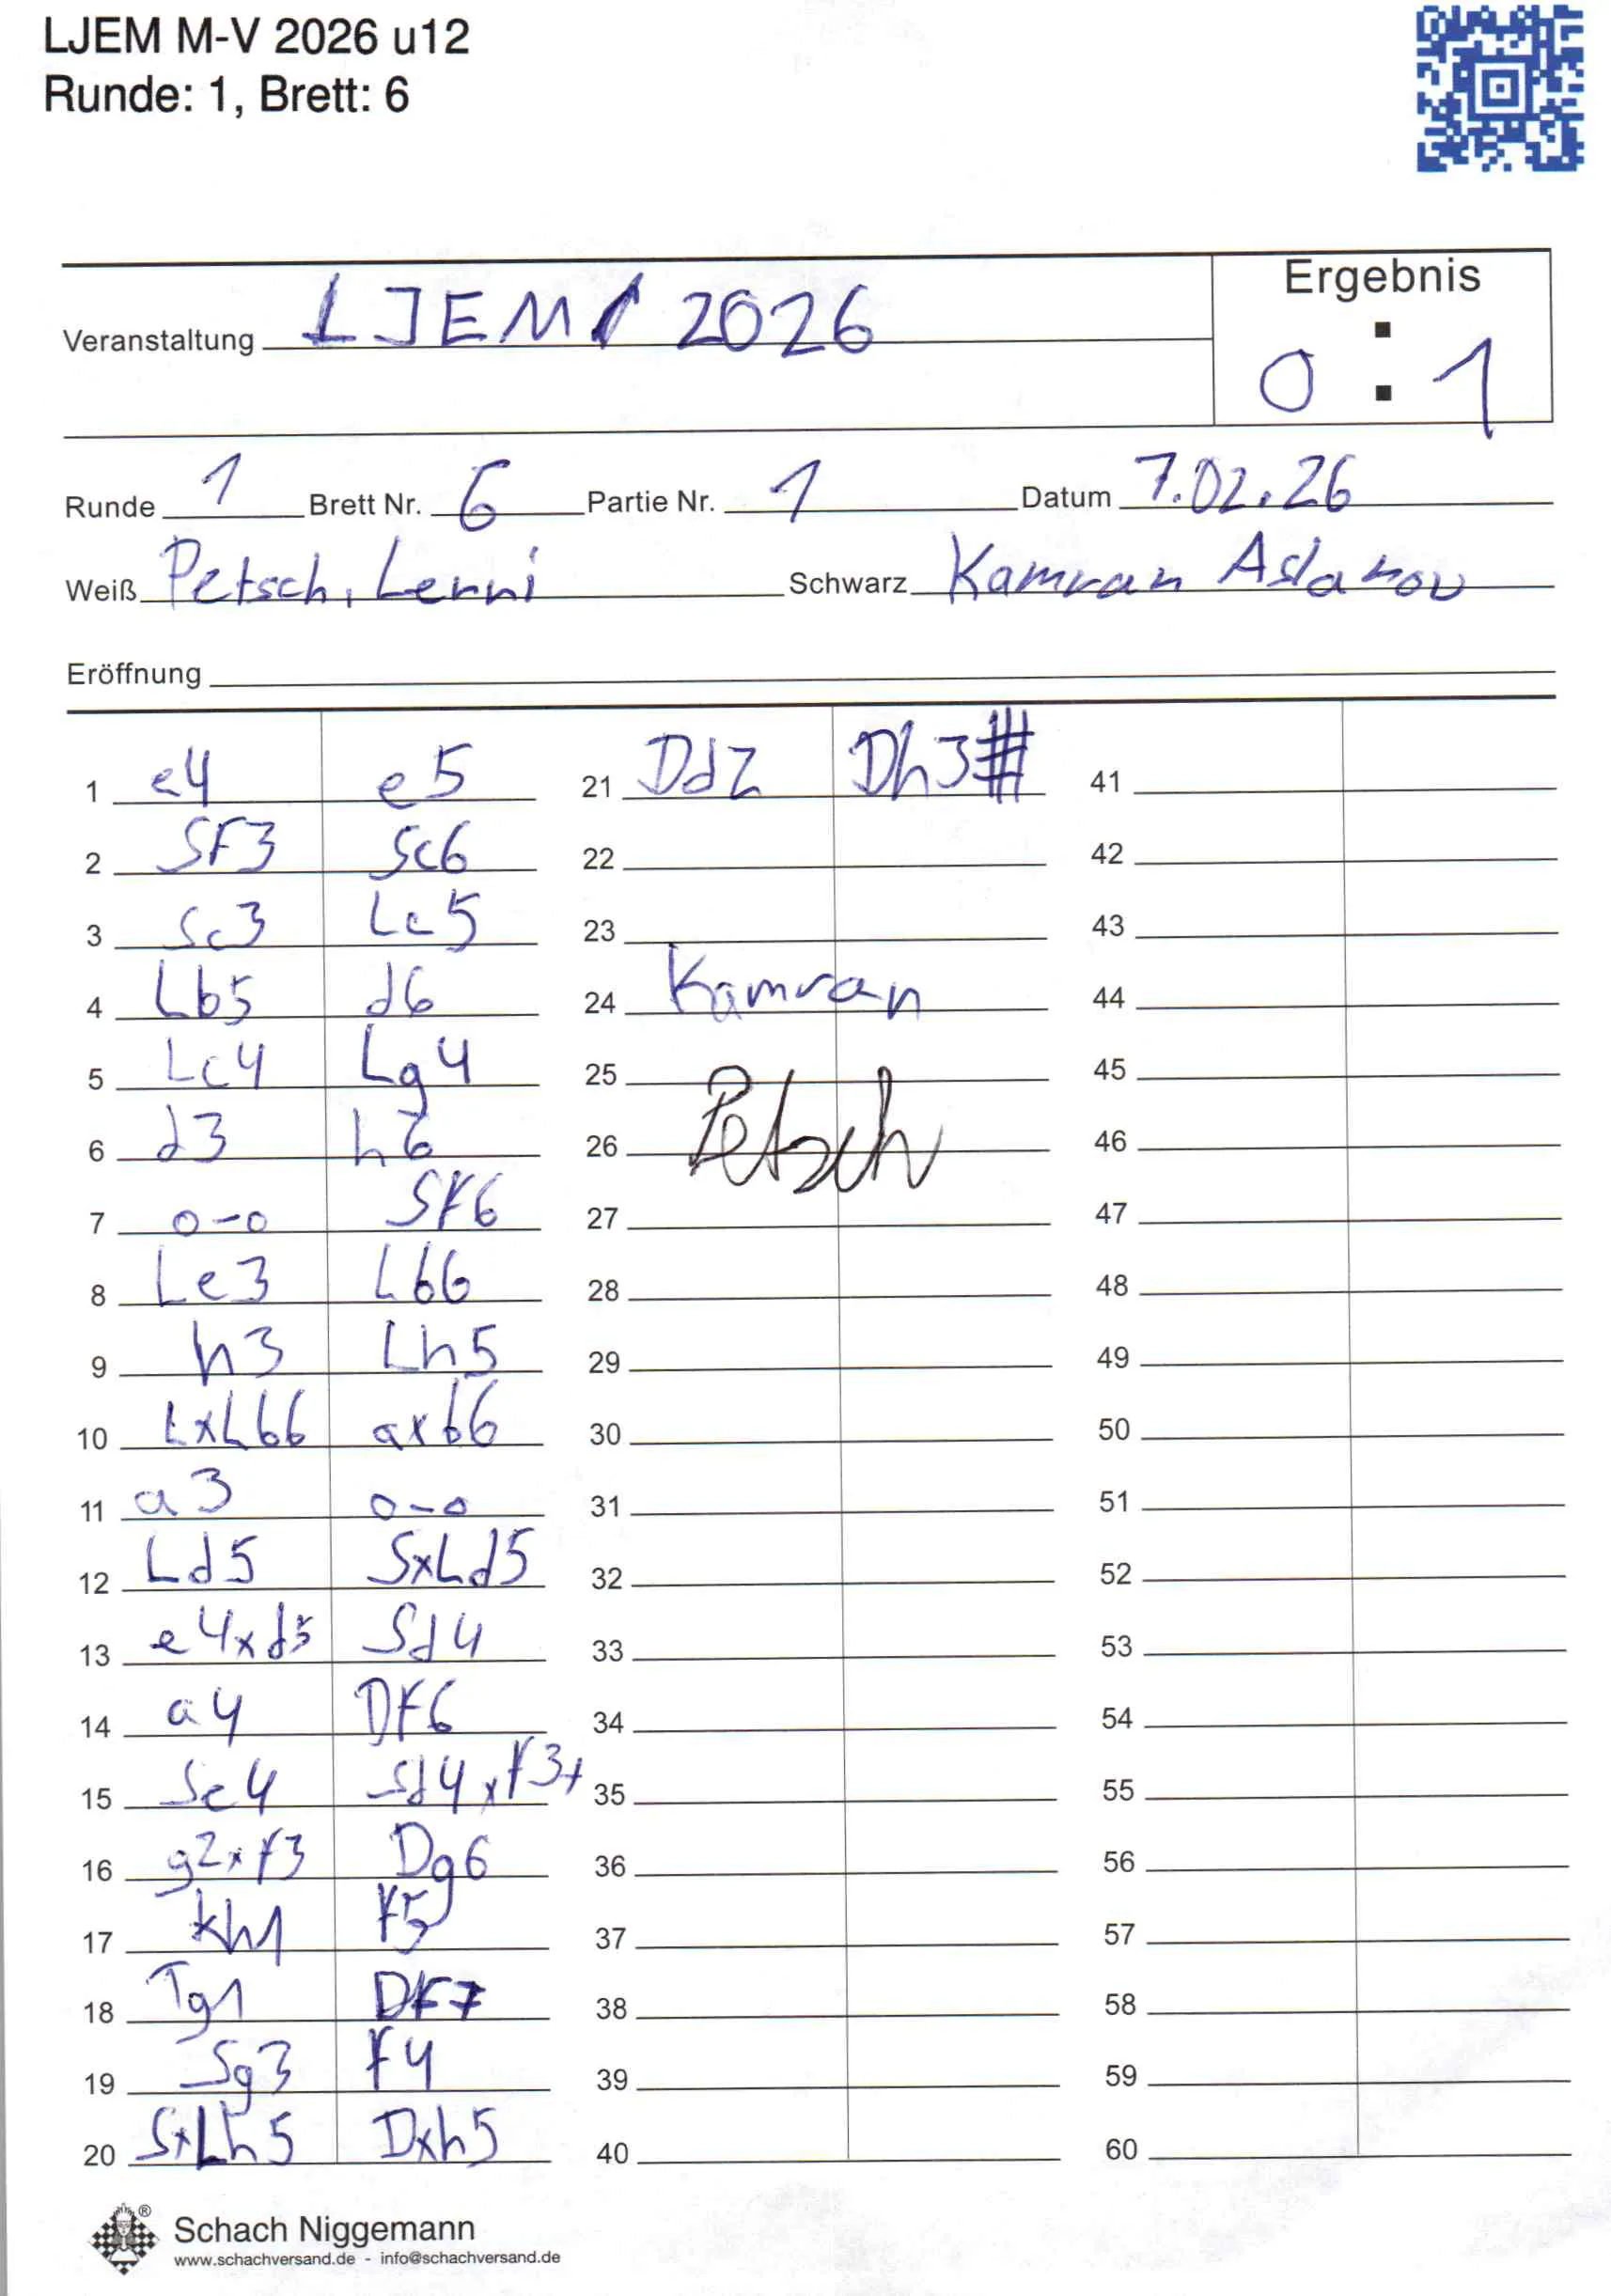 LJEM M-V 2026 u12
Runde: 1, Brett: 6
Ergebnis
Veranstaltung LJEM 2026
0 : 1
Runde 1 Brett Nr. 6 Partie Nr. 1 Datum 7.02.26
Weiß Petsch, Lenni Schwarz Kamran Aslanov
Eröffnung
1 e4 e5 21 Dd2 Dh3# 41
2 SF3 Sc6 22 42
3 Sc3 Lc5 23 43
4 Lb5 d6 24 Kamran 44
5 Lc4 Lg4 25 45
6 d3 h6 26 Petsch 46
7 o-o SF6 27 47
8 Le3 Lb6 28 48
9 h3 Lh5 29 49
10 LxLb6 axb6 30 50
11 a3 o-o 31 51
12 Ld5 SxLd5 32 52
13 e4xd5 Sd4 33 53
14 a4 DF6 34 54
15 Se4 Sd4xf3+ 35 55
16 g2xf3 Dg6 36 56
17 Kh1 F5 37 57
18 Tg1 DF7 38 58
19 Sg3 F4 39 59
20 SxLh5 Dxh5 40 60
®
Schach Niggemann
www.schachversand.de - info@schachversand.de